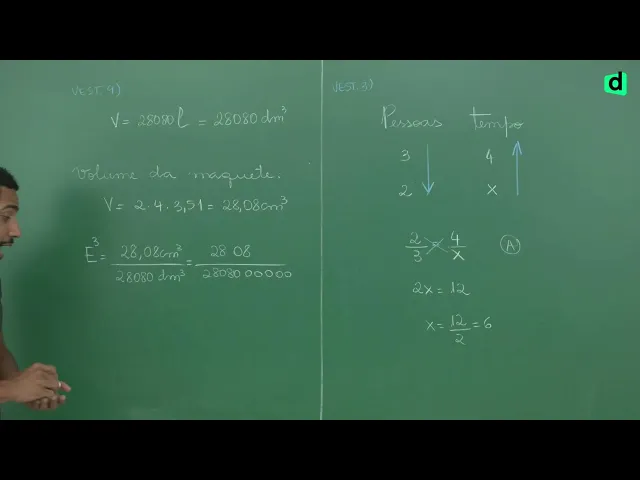 VEST. 4)
V = 28080 l = 28080 dm³
Volume da maquete.
V = 2 · 4 · 3,51 = 28,08cm³
E³ = 28,08cm³ / 28080 dm³ = 28 08 / 28080 00000
VEST. 3)
Pessoas tempo
3 4
2 x
2/3 = 4/x
A
2x = 12
x = 12/2 = 6
d